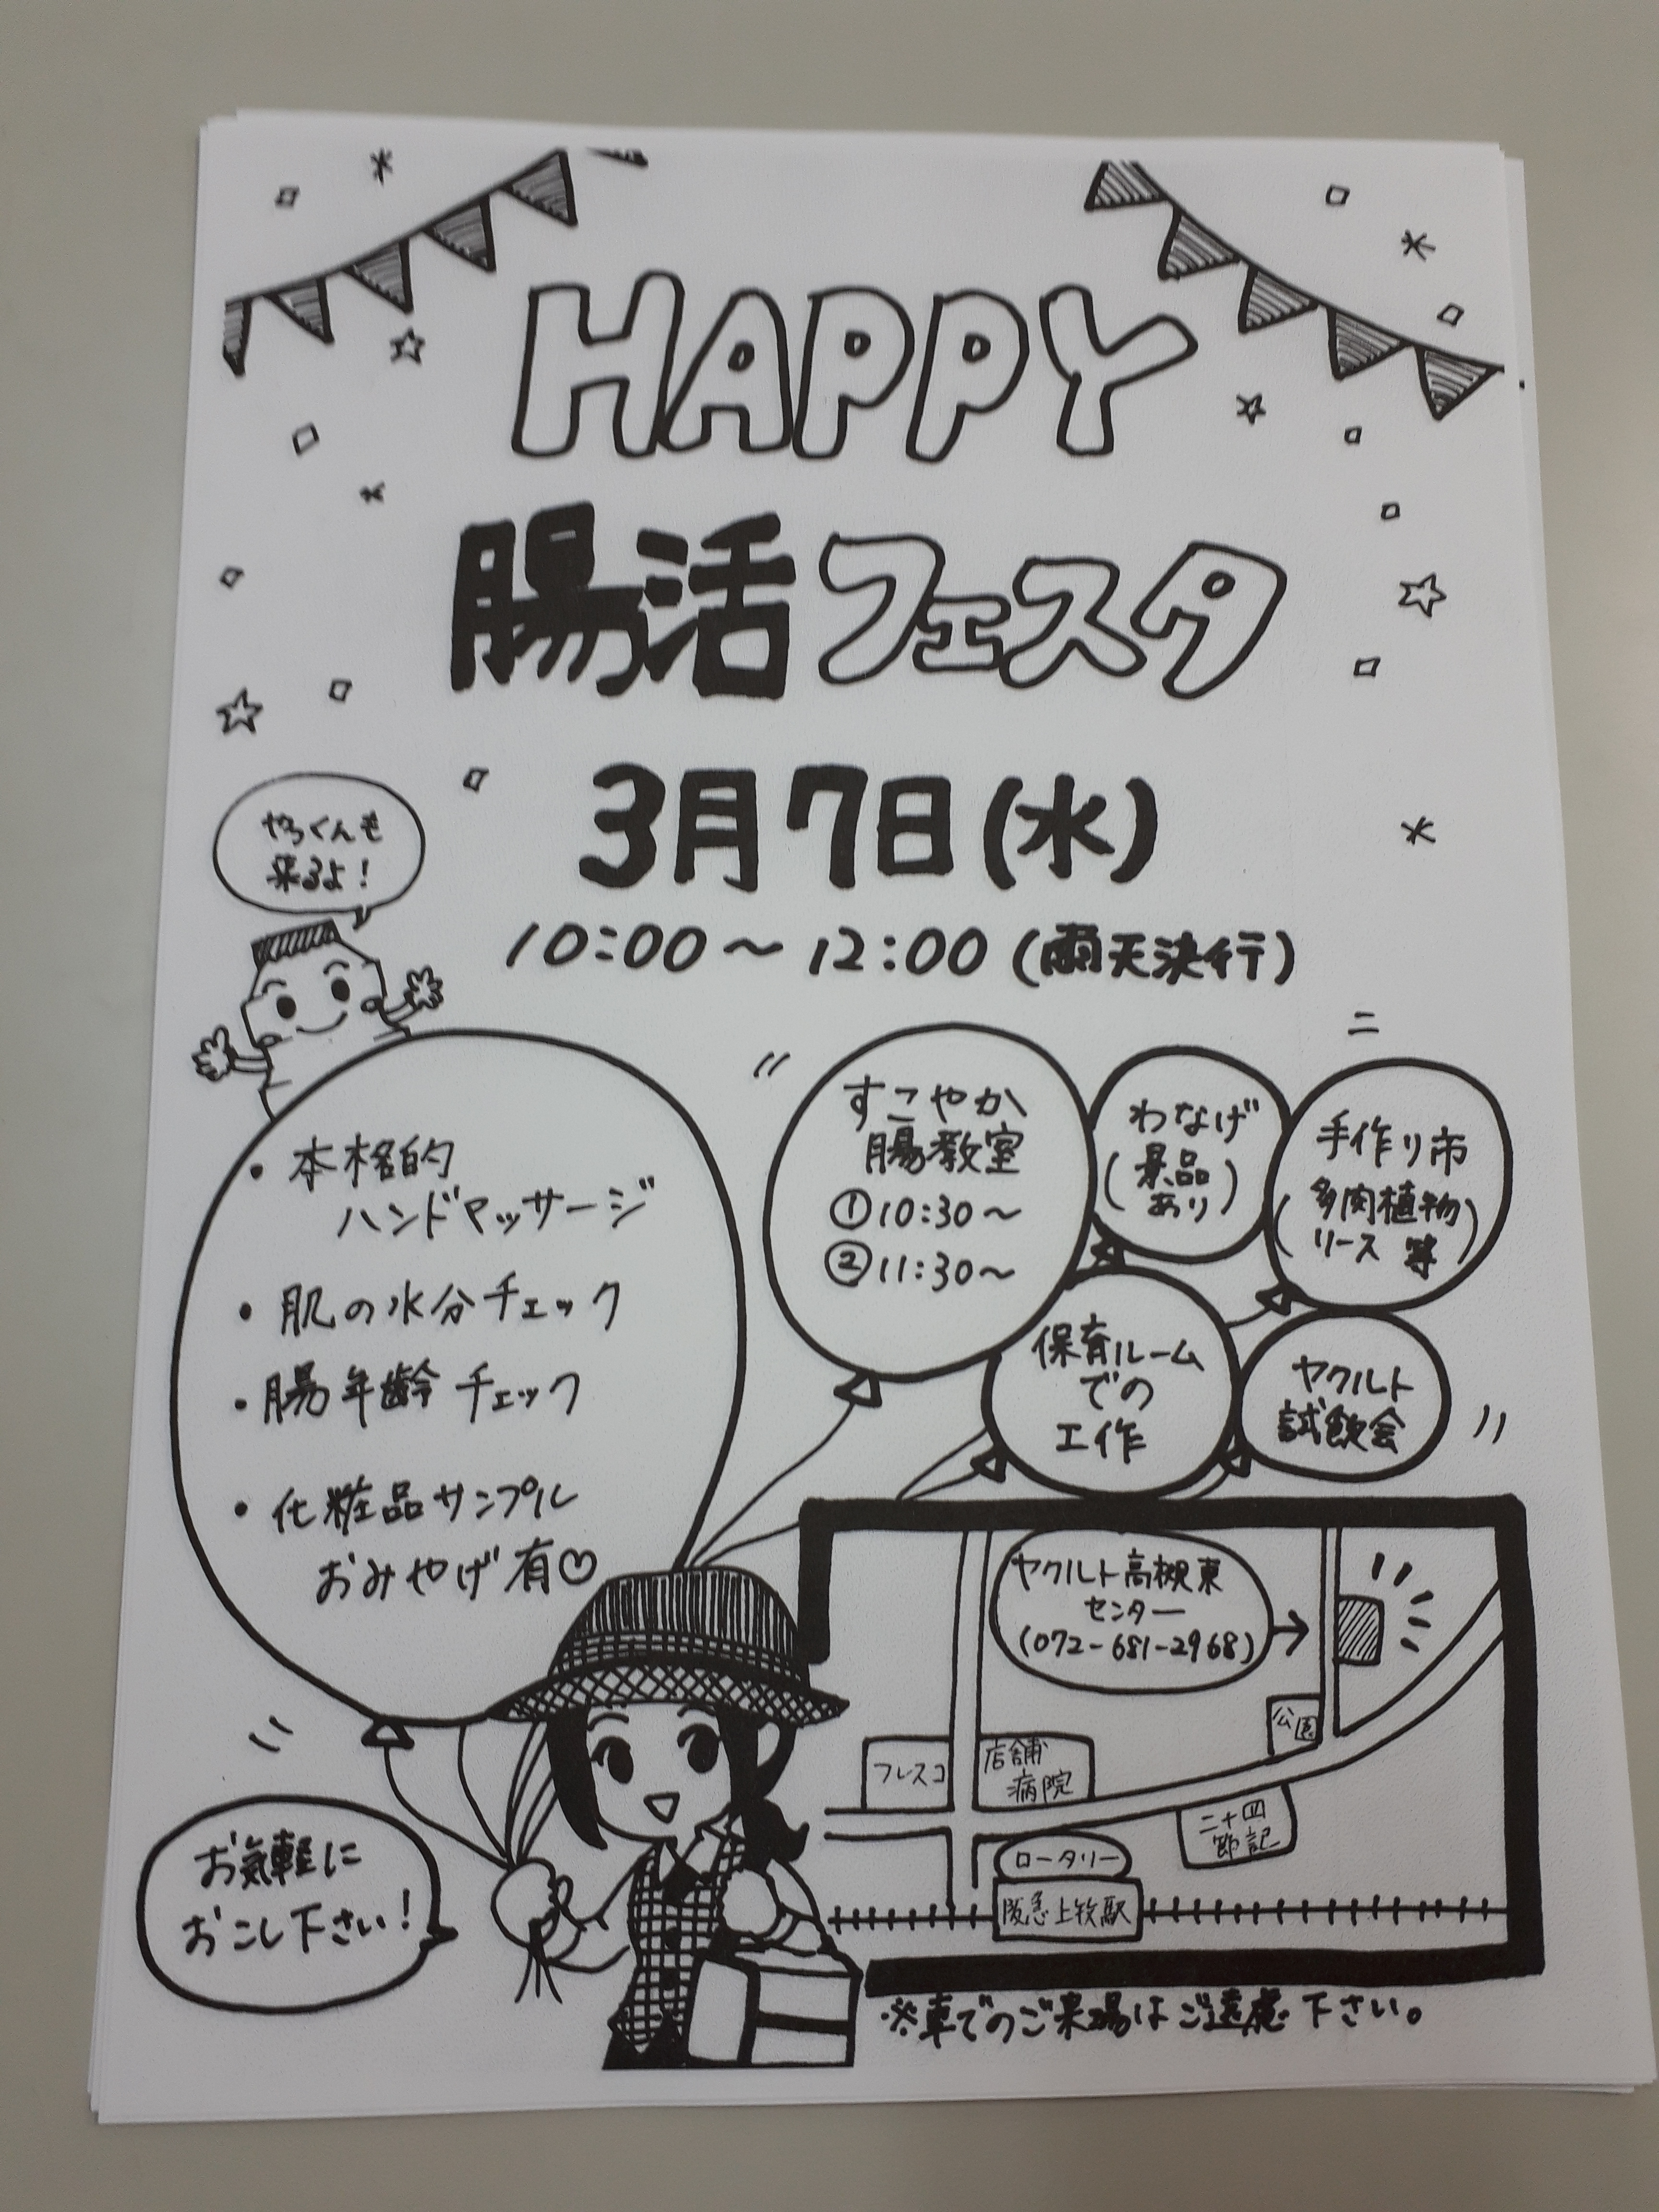 HAPPY
腸活フェスタ
3月7日(水)
10:00～12:00(雨天決行)
やっくんも
来るよ!
・本格的
ハンドマッサージ
・肌の水分チェック
・腸年齢チェック
・化粧品サンプル
おみやげ有♡
すこやか
腸教室
①10:30～
②11:30～
わなげ
(景品
あり)
手作り市
(多肉植物
リース 等)
保育ルーム
での
工作
ヤクルト
試飲会
ヤクルト高槻東
センター
(072-681-2968)
→
公園
フレスコ
店舗
病院
二十四
節記
ロータリー
阪急上牧駅
お気軽に
おこし下さい!
※車でのご来場はご遠慮下さい。